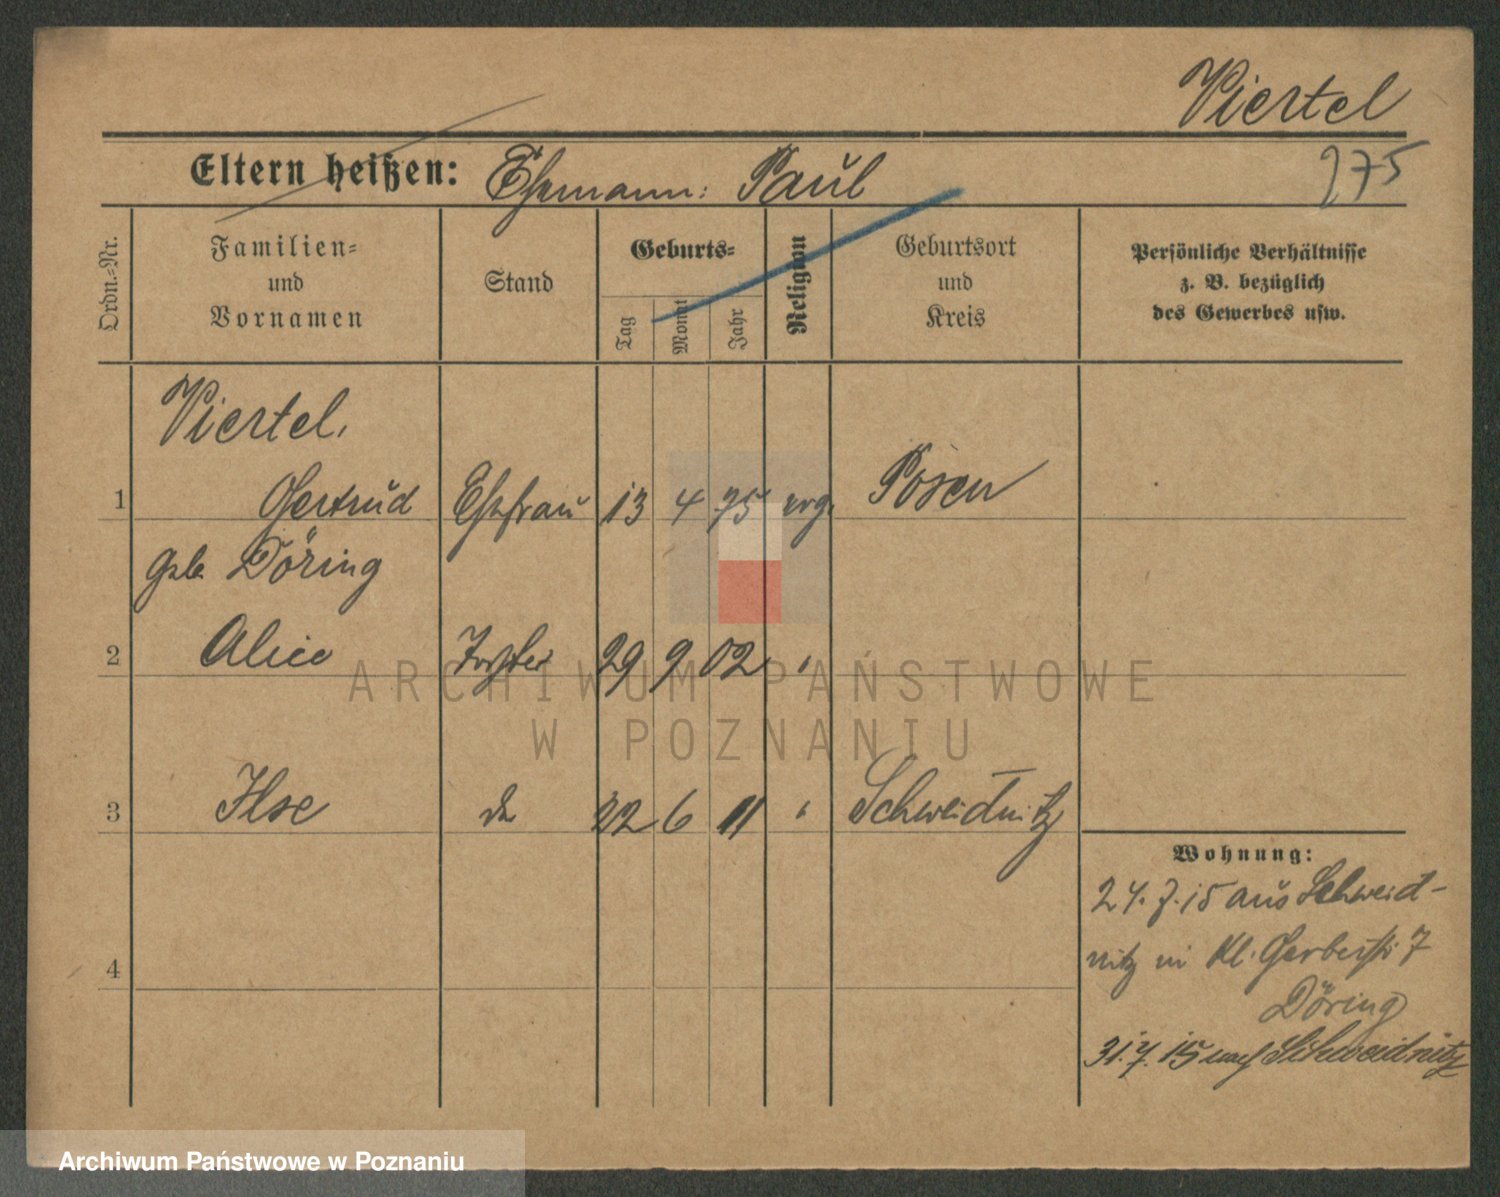 Viertel
Eltern heißen: Ehemann: Paul
275
Ordn.-Nr.
Familien-
und
Vornamen
Stand
Geburts-
Tag
Monat
Jahr
Religion
Geburtsort
und
Kreis
Persönliche Verhältnisse
z. B. bezüglich
des Gewerbes usw.
Viertel,
1 Gertrud Ehefrau 13 4 75 evg. Posen
geb. Döring
2 Alice Tochter 29 9 02 "
3 Ilse do 22 6 11 " Schweidnitz
Wohnung:
24.7.15 aus Schweid-
nitz in Kl. Gerberstr 7
Döring
31.7.15 nach Schweidnitz
4
ARCHIWUM PAŃSTWOWE
W POZNANIU
Archiwum Państwowe w Poznaniu